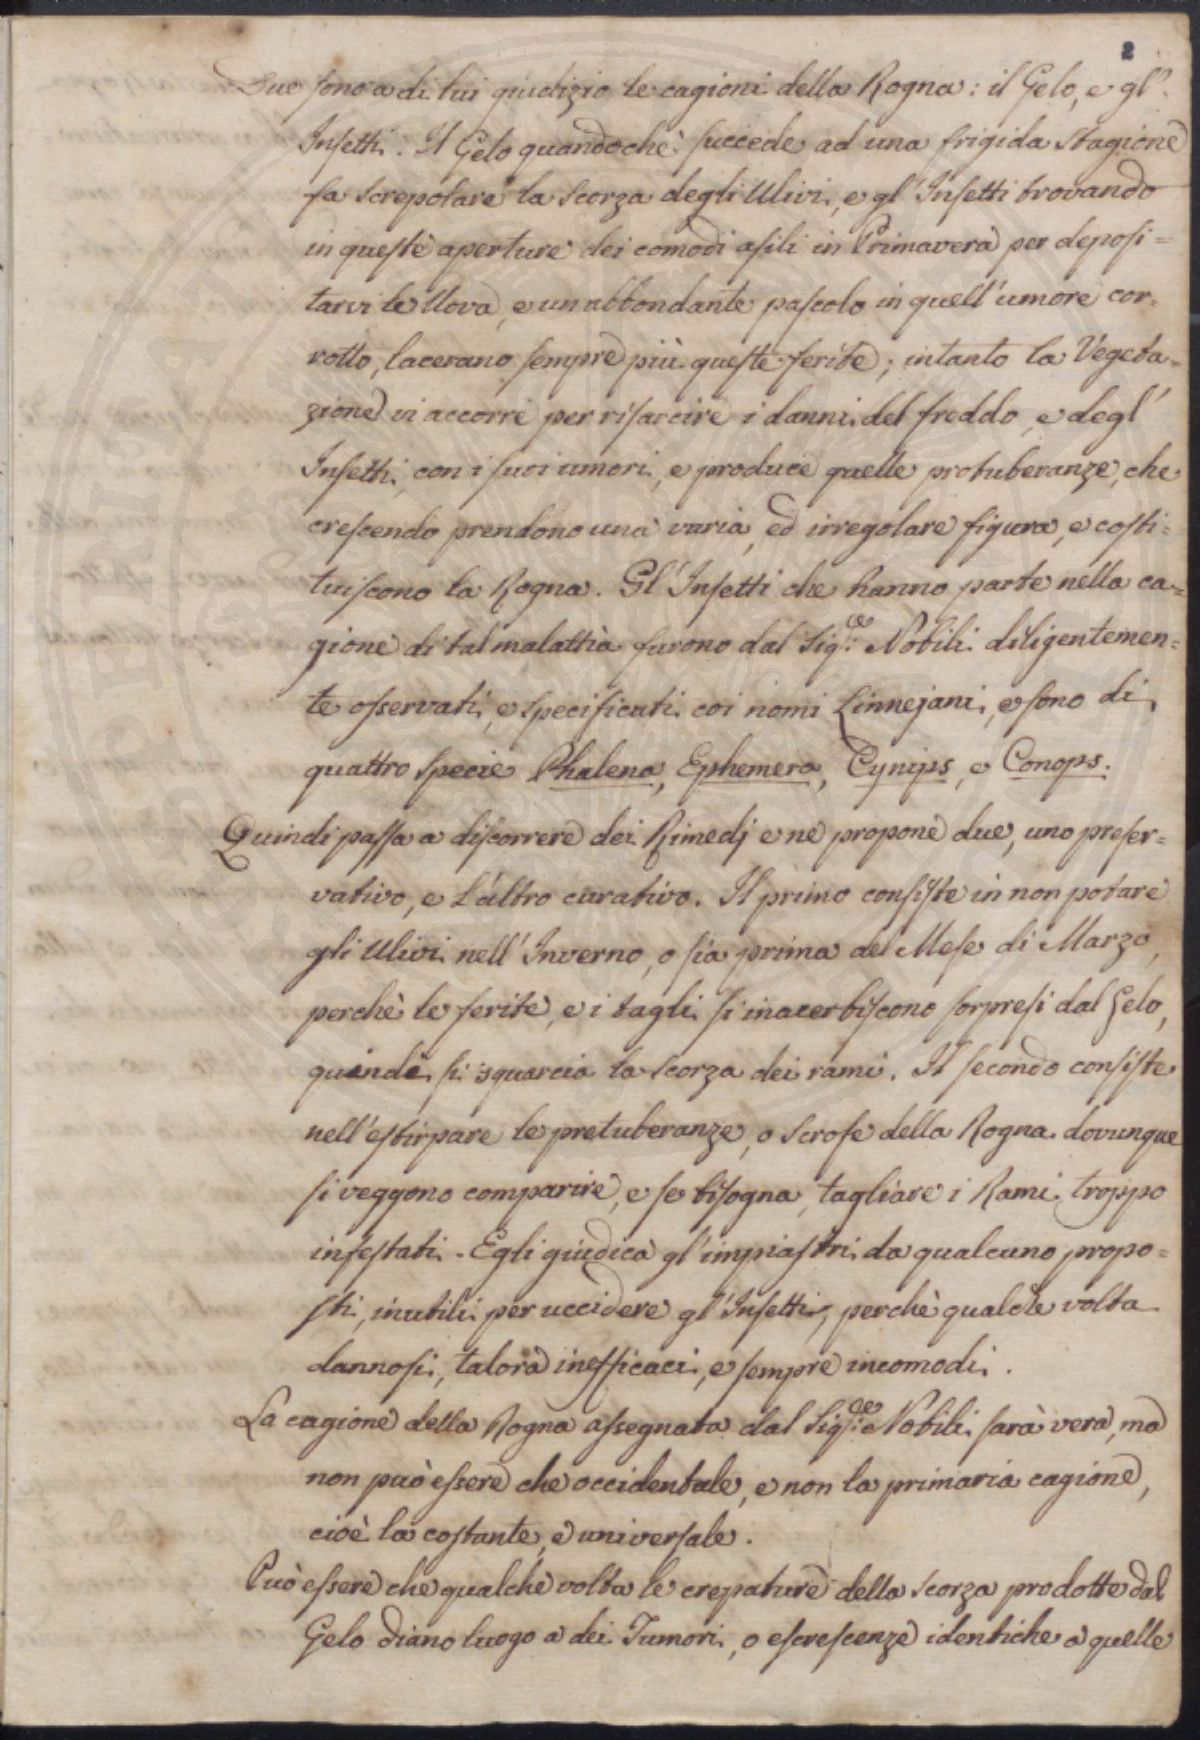 2
Due sono a di lui giudizio le cagioni della Rogna: il Gelo, e gl'
Insetti. Il Gelo quandochè succede ad una frigida stagione
fa screpolare la scorza degli Ulivi, e gl'Insetti trovando
in queste aperture dei comodi asili in Primavera per deposi=
tarvi le Uova, e un abbondante pascolo in quell'umore cor=
rotto, lacerano sempre più queste ferite; intanto la Vegeta=
zione vi accorre per risarcire i danni del freddo, e degl'
Insetti, con i suoi umori, e produce quelle protuberanze, che
crescendo prendono una varia, ed irregolare figura, e costi=
tuiscono la Rogna. Gl'Insetti che hanno parte nella ca=
gione di tal malattia furono dal Sig.re Nobili diligentemen=
te osservati, e specificati coi nomi Linnejani, e sono di
quattro specie Phalena, Ephemera, Cynips, e Conops.
Quindi passa a discorrere dei Rimedj e ne propone due, uno preser=
vativo, e l'altro curativo. Il primo consiste in non potare
gli Ulivi nell'Inverno, o sia prima del Mese di Marzo,
perchè le ferite, e i tagli si inacerbiscono sorpresi dal Gelo,
quindi si squarcia la scorza dei rami. Il secondo consiste
nell'estirpare le pretuberanze, o scrofe della Rogna dovunque
si veggono comparire, e se bisogna, tagliare i Rami troppo
infestati. Egli giudica gl'impiastri da qualcuno propo=
sti, inutili per uccidere gl'Insetti, perchè qualche volta
dannosi, talora inefficaci, e sempre incomodi.
La cagione della Rogna assegnata dal Sig.re Nobili sarà vera, ma
non può essere che occidentale, e non la primaria cagione,
cioè la costante, e universale.
Può essere che qualche volta le crepature della scorza prodotte dal
Gelo diano luogo a dei Tumori, o escrescenze identiche a quelle